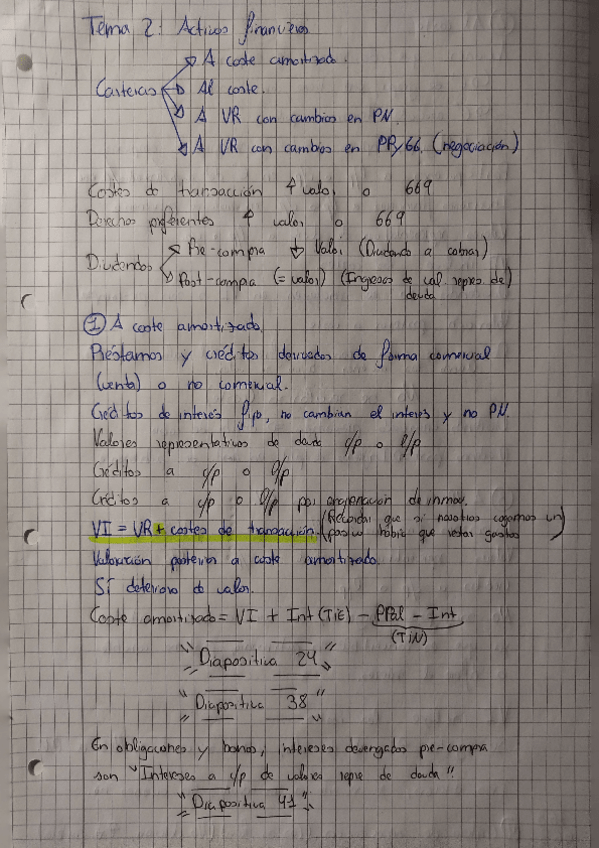 Tema 2: Activos financieros
A coste amortizado.
Carteras Al coste.
A VR con cambios en PN.
A VR con cambios en PPyGG. (negociación)
Costes de transacción ↑ valor o 669
Derechos preferentes ↑ valor o 669
Pre-compra ↓ Valor (Dividendo a cobrar)
Dividendos
Post-compra (= valor) (Ingresos de val. repres de)
deuda
① A coste amortizado
Préstamos y créditos derivados de forma comercial
(venta) o no comercial.
Créditos de interés fijo, no cambian el interés y no PN.
Valores representativos de deuda c/p o l/p
Créditos a c/p o l/p
Créditos a c/p o l/p por enajenación de inmov.
VI = VR + costes de transacción. (Recordar que si nosotros cogemos un
pasivo habría que restar gastos)
Valoración posterior a coste amortizado.
SÍ deterioro de valor.
Coste amortizado = VI + Int (TIE) - PPal - Int
(TIN)
"Diapositiva 24"
"Diapositiva 38"
En obligaciones y bonos, intereses devengados pre-compra
son "Intereses a c/p de valores repre de deuda".
"Diapositiva 41"